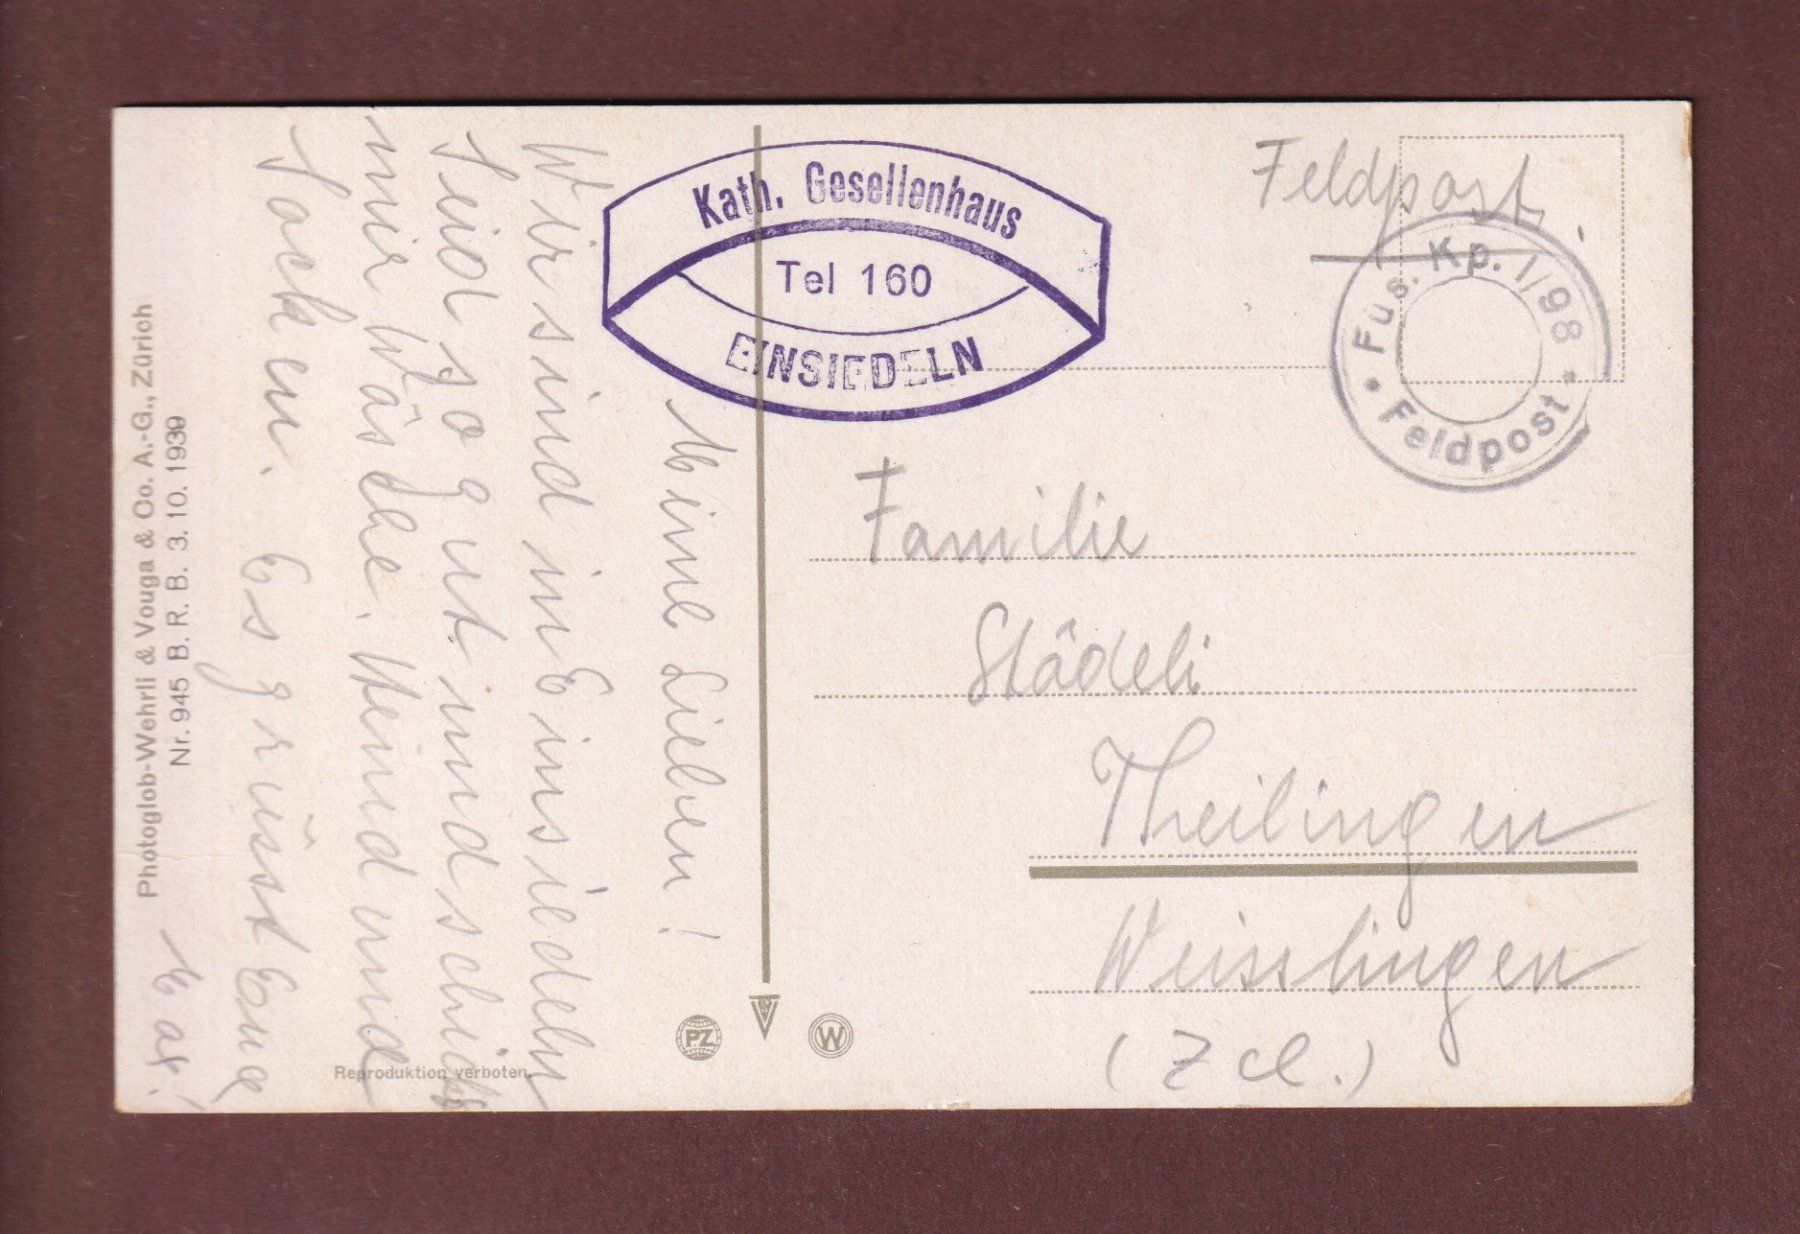 Kath. Gesellenhaus
Tel 160
EINSIEDELN
Feldpost.
Füs. Kp. I/98
• Feldpost •
Familie
Städeli
Theilingen
Weisslingen
(Zch.)
Meine Lieben!
Wir sind in Einsiedeln
Seid so gut und schickt
mir Wäsche, Hemd und
Socken. Es grüsst Euch
Photoglob-Wehrli & Vouga & Co. A.-G., Zürich
Nr. 945 B. R. B. 3. 10. 1939
Reproduktion verboten.
PZ
W